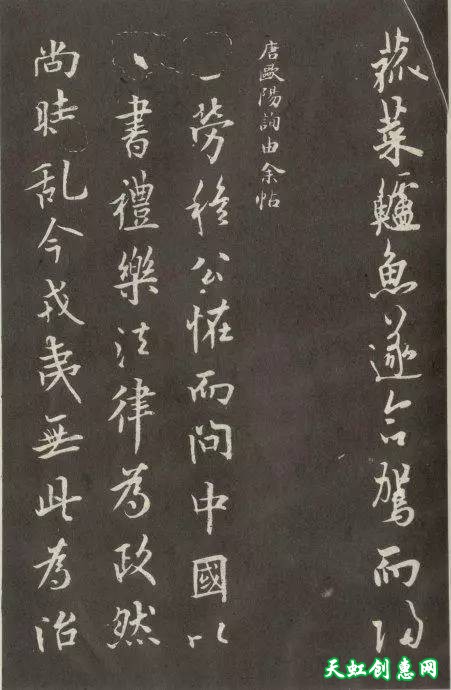 菰菜鱸魚遂命駕而歸
唐歐陽詢由余帖
勞穆公恠而問中國以
書禮樂法律為政然
尚時乱今戎夷無此為治
天虹创惠网